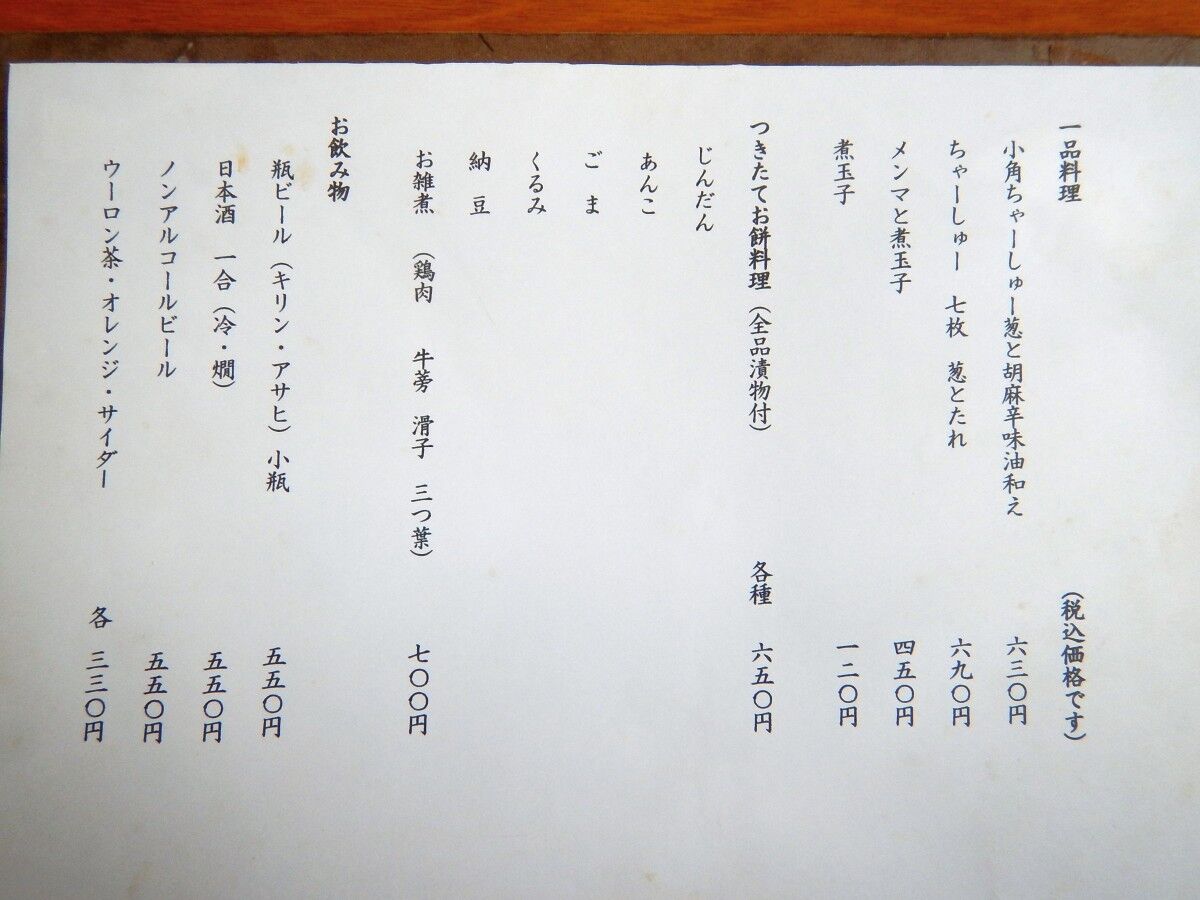 一品料理　（税込価格です）
小角ちゃーしゅー葱と胡麻辛味油和え　六三〇円
ちゃーしゅー　七枚　葱とたれ　六九〇円
メンマと煮玉子　四五〇円
煮玉子　一二〇円
つきたてお餅料理（全品漬物付）　各種　六五〇円
じんだん
あんこ
ごま
くるみ
納豆
お雑煮　（鶏肉　牛蒡　滑子　三つ葉）　七〇〇円
お飲み物
瓶ビール（キリン・アサヒ）小瓶　五五〇円
日本酒　一合（冷・燗）　五五〇円
ノンアルコールビール　五五〇円
ウーロン茶・オレンジ・サイダー　各　三三〇円